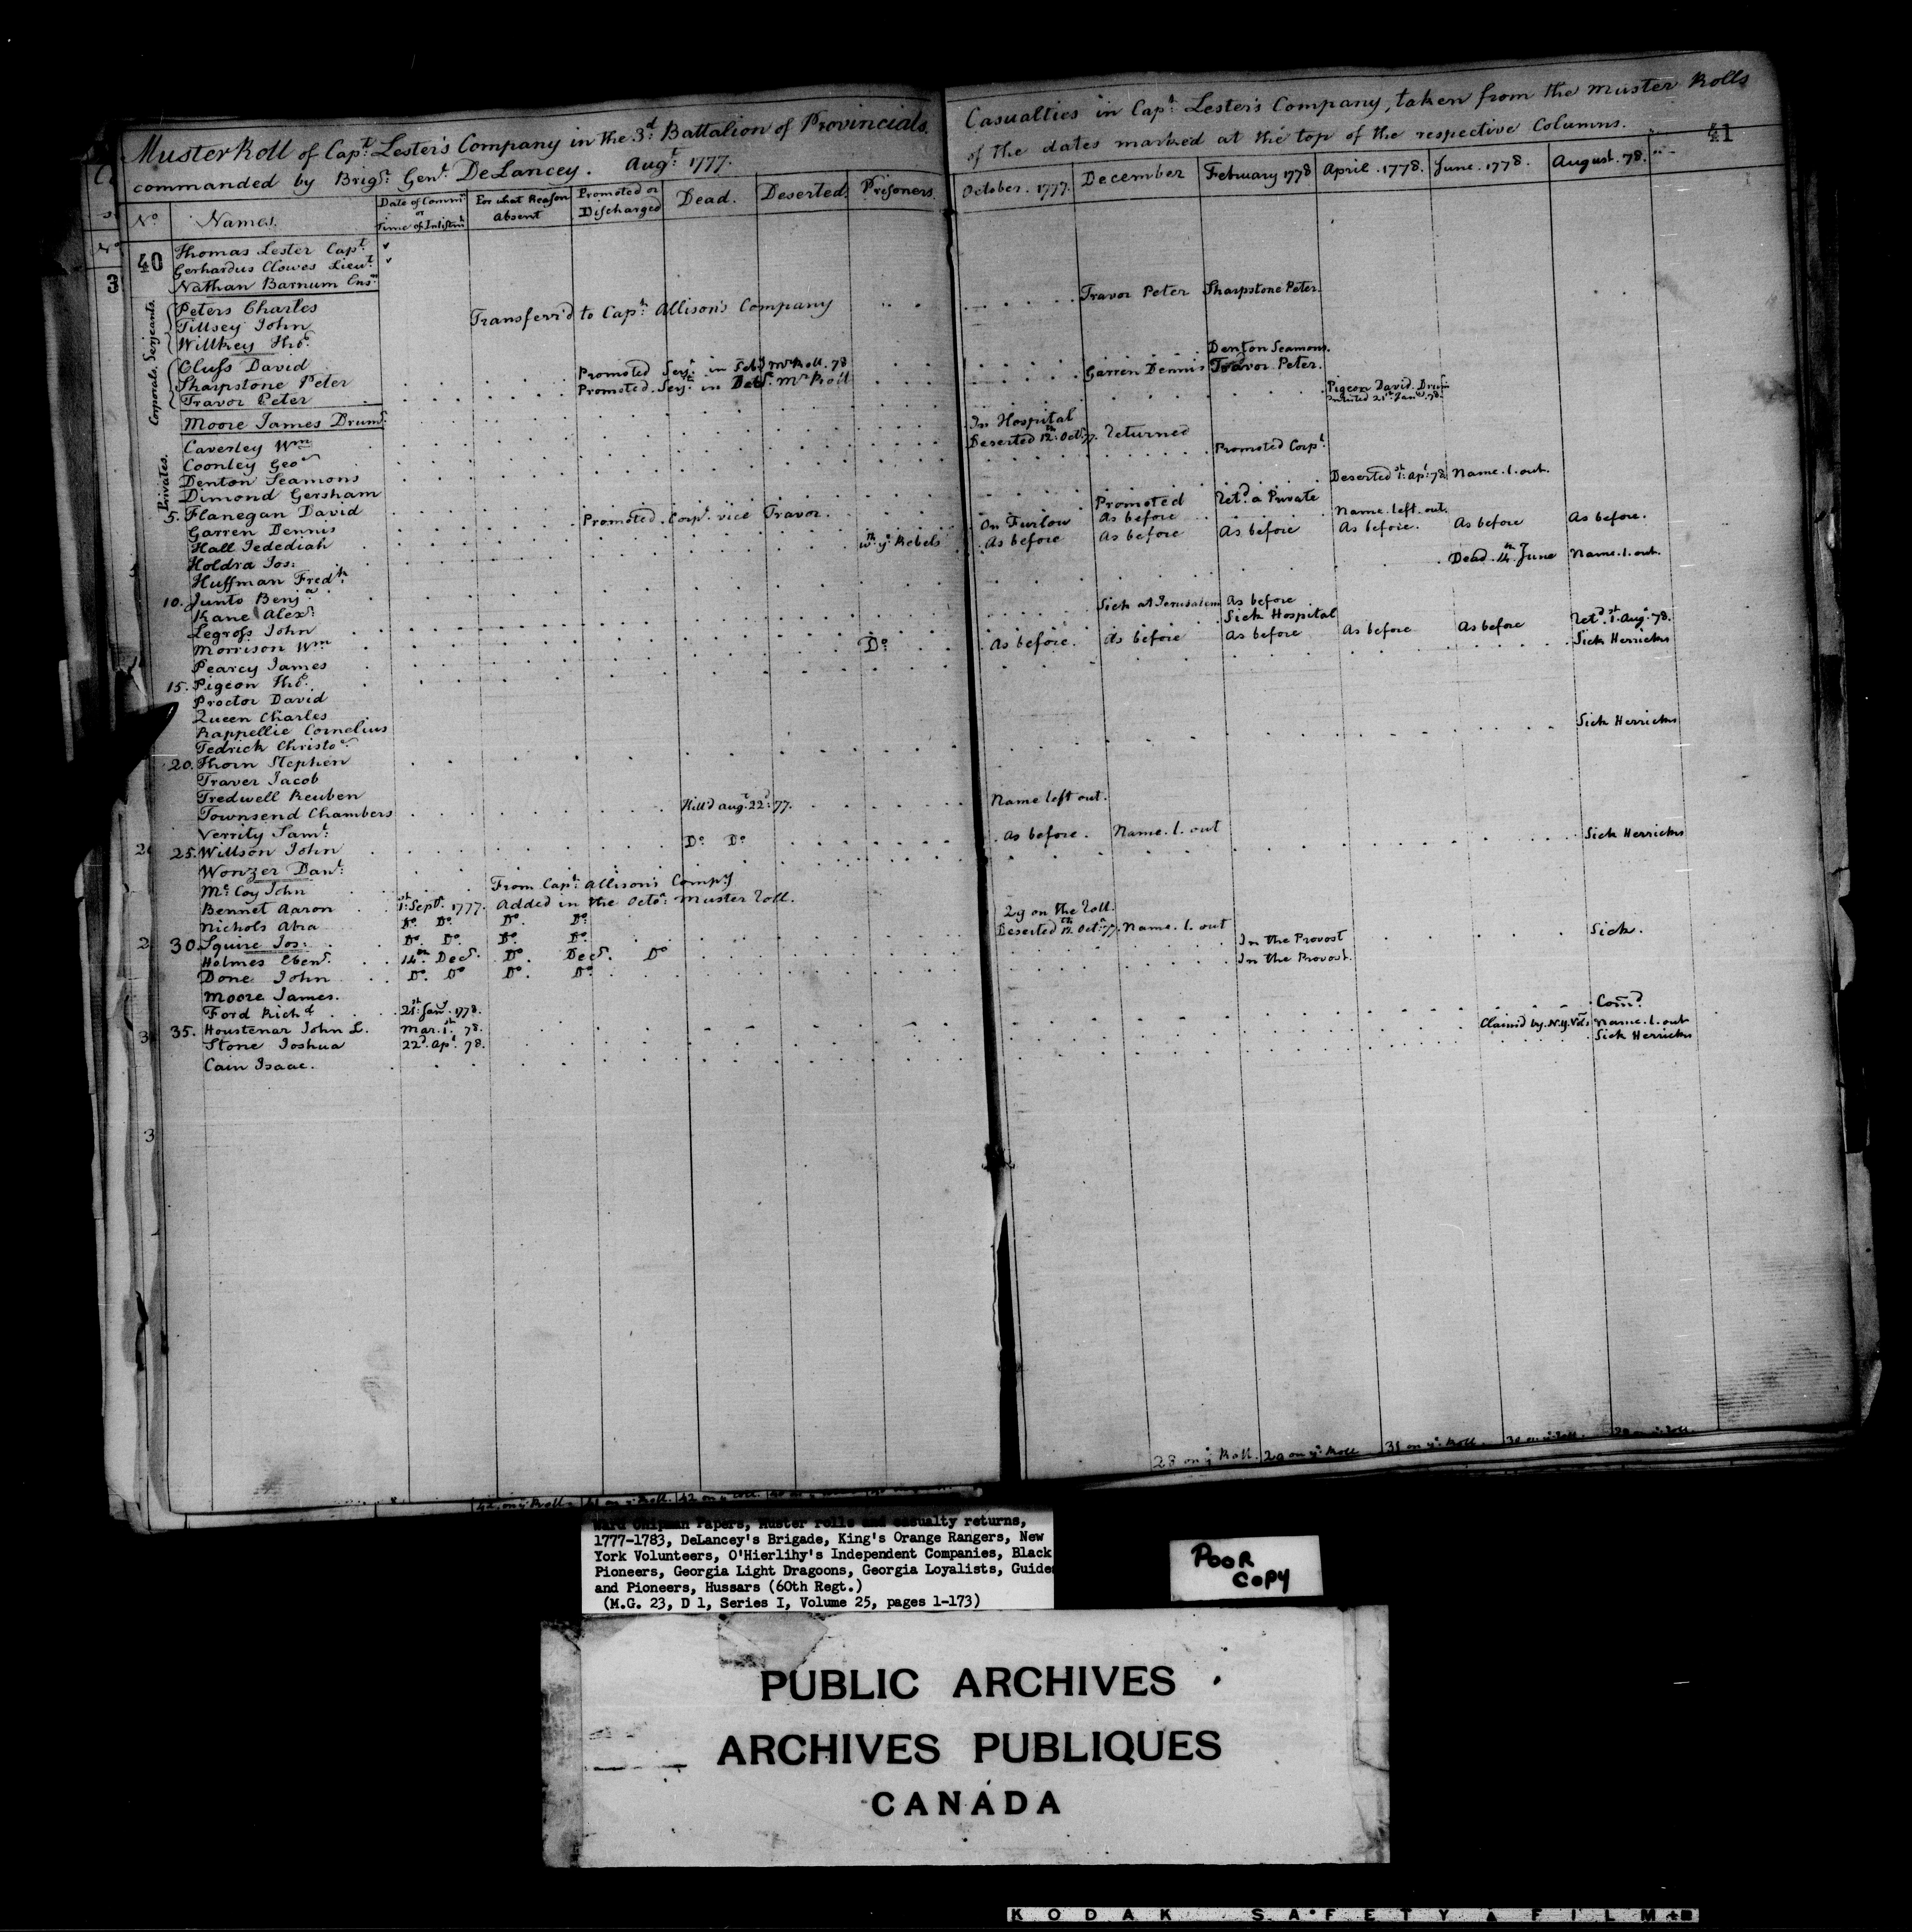 Muster Roll of Capt. Lester's Company in the 3d. Battalion of Provincials.
commanded by Brigr. Genl. DeLancey. Augt. 1777.
No. Names. Date of Commn. or Time of Inlistmt. For what Reason Absent Promoted or Discharged Dead. Deserted. Prisoners.
40
Thomas Lester Capt.
Gerhardus Clowes Lieut.
Nathan Barnum Ensn.
Serjeants.
Peters Charles
Tillsey John Transferr'd to Capt. Allison's Company
Willkey Thos.
Corporals.
Cluss David
Sharpstone Peter Promoted Serjt. in Feby. Mr. Roll. 78
Travor Peter Promoted Serjt. in Decr. Mr. Roll
Moore James Drumr.
Privates.
Caverley Wm.
Coonley Geo.
Denton Seamons
Dimond Gersham
5. Flanegan David
Garren Dennis Promoted Corpl. vice Travor.
Hall Jedediah
Holdra Jos: wth. ye. Rebels
Huffman Fredk.
10. Junto Benja.
Kane Alexr.
Legross John
Morrison Wm.
Pearcy James Do.
15. Pigeon Thos.
Proctor David
Queen Charles
Rappellie Cornelius
Tedrick Christor.
20. Thorn Stephen
Traver Jacob
Tredwell Reuben
Townsend Chambers Kill'd augt. 22d. 77.
Verrity Saml.
25. Willson John Do. Do.
Wonzer Danl.
Mc.Coy John From Capt. Allison's Compy.
Bennet Aaron 1st. Sept. 1777. Added in the Octor. Muster Roll.
Nichols Abra Do. Do. Do. Do.
30. Squire Jos: Do. Do. Do. Do.
Holmes Ebenr. 14th. Decr. Do. Decr. Do
Done John Do. Do Do. Do.
Moore James.
Ford Richd. 21st. Jany. 1778.
35. Houstenar John L. Mar. 1st. 78.
Stone Joshua 22d. Apl. 78.
Cain Isaac.
Casualties in Capt. Lester's Company, taken from the Muster Rolls
of the dates marked at the top of the respective Columns.
41
October. 1777. December February 1778 April. 1778. June. 1778. August. 78.
Travor Peter Sharpstone Peter.
Denton Seamons.
Garren Dennis Travor Peter.
Pigeon David Drumr.
21st. Jany. 78.
In Hospital
Deserted 12th. Octr. 77. returned
Promoted Corpl.
Deserted 1st. Apl. 78 Name. l. out.
Promoted Retd. a Private
On Furlow As before Name. left. out.
As before As before As before As before. As before As before.
Dead 14th. June Name. l. out.
Sick at Jerusalem As before
Sick Hospital Retd. 1st. Augt. 78.
As before. As before As before As before As before Sick Herricks
Sick Herricks
Name left out.
As before. Name. l. out Sick Herricks
29 on the Roll.
Deserted 12th. Octr. 77. Name. l. out Sick.
In the Provost
In the Provost.
Comd.
Claim'd by. N.Y. Vols. Name. l. out
Sick Herricks
28 on ye. Roll. 29 on ye. Roll 31 on ye. Roll.
Ward Chipman Papers, Muster rolls and casualty returns,
1777-1783, DeLancey's Brigade, King's Orange Rangers, New
York Volunteers, O'Hierlihy's Independent Companies, Black
Pioneers, Georgia Light Dragoons, Georgia Loyalists, Guides
and Pioneers, Hussars (60th Regt.)
(M.G. 23, D 1, Series I, Volume 25, pages 1-173)
POOR
COPY
PUBLIC ARCHIVES
ARCHIVES PUBLIQUES
CANADA
KODAK SAFETY FILM